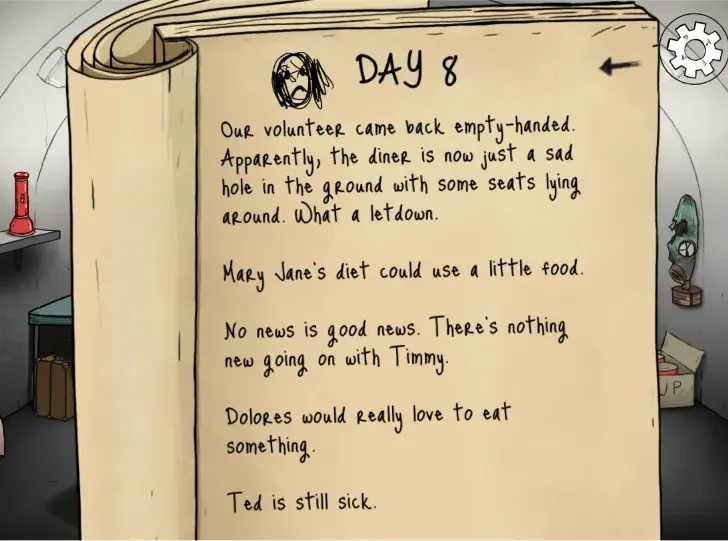 DAY 8
Our volunteer came back empty-handed.
Apparently, the diner is now just a sad
hole in the ground with some seats lying
around. What a letdown.
Mary Jane's diet could use a little food.
No news is good news. There's nothing
new going on with Timmy.
Dolores would really love to eat
something.
Ted is still sick.
UP